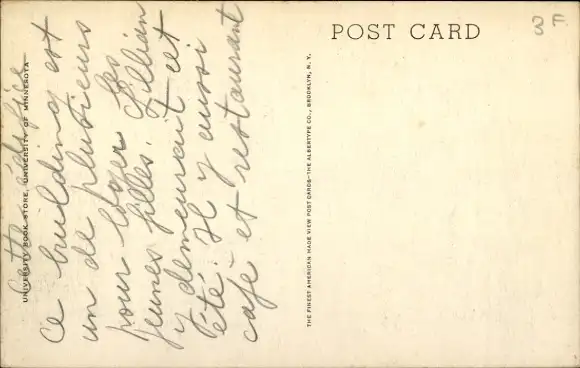 POST CARD
UNIVERSITY BOOK STORE, UNIVERSITY OF MINNESOTA
cette édifice
Ce building est
un de plusieurs
pour loger les
jeunes filles. Lillian
y demeurait cet
été. Il y aussi
café et restaurant
THE FINEST AMERICAN MADE VIEW POST CARDS—THE ALBERTYPE CO., BROOKLYN, N. Y.